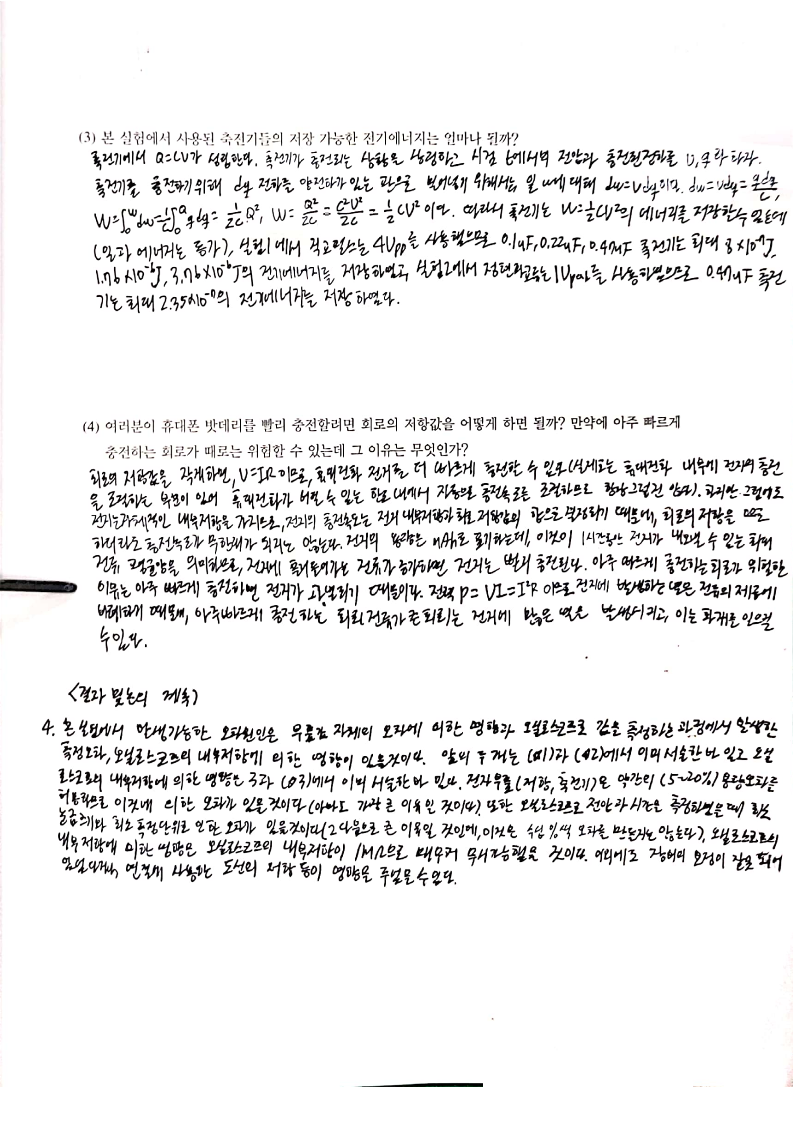 (3) 본 실험에서 사용된 축전기들의 저장 가능한 전기에너지는 얼마나 될까?
축전기에서 Q=CV가 성립한다. 축전기가 충전되는 상황을 상정하고 시점 t에서의 전압과 충전된전하를 v, q라 하자.
축전기를 충전하기 위해 dq 전하를 양전하가 있는 판으로 밀어넣기 위해서는 일 w에 대해 dw=vdq이고. dw=vdq=
W= = Q², W= = = CV² 이다. 따라서 축전기는 W=½CV²의 에너지를 저장할수 있는데
(일과 에너지는 등가), 실험1에서 직교펄스는 4Vpp를 사용했으므로 0.1uF, 0.22uF, 0.47uF 축전기는 최대 8×10⁻⁷J,
1.76×10⁻⁶J, 3.76×10⁻⁶J의 전기에너지를 저장하였고, 실험2에서 정현파교류는 를 사용하였으므로 0.47uF 축전
기는 최대 2.35×10⁻⁷의 전기에너지를 저장하였다.
(4) 여러분이 휴대폰 밧데리를 빨리 충전할려면 회로의 저항값을 어떻게 하면 될까? 만약에 아주 빠르게
충전하는 회로가 때로는 위험할 수 있는데 그 이유는 무엇인가?
회로의 저항값을 작게하면, V=IR이므로, 휴대전화 전지를 더 빠르게 충전할 수 있다(실제로는 휴대전화 내부에 전지의 충전
을 조절하는 부분이 있어 휴대전화가 버틸 수 있는 한도 내에서 자동으로 충전속도를 조절하므로 항상 그렇진 않다). 하지만 그럼에도
전지는 자체적인 내부저항을 가지므로, 전지의 충전속도는 전지 내부저항과 회로 저항값의 합으로 결정되기 때문에, 회로의 저항을
하더라도 충전속도가 무한대가 되지는 않는다. 전지의 용량은 mAh로 표기하는데, 이것이 1시간동안 전지가 내보낼 수 있는 최대
전류 의미하므로, 전지에 흘러들어가는 전류가 증가하면 전지는 빨리 충전된다. 아주 빠르게 충전하는 회로가 위험한
이유는 아주 빠르게 충전하면 전지가 과열되기 때문이다. 전력 P=VI=I²R 이므로 전지에 발생하는 열은 전류의 제곱에
비례하기 때문에, 아주 빠르게 충전하는 회로(전류가 큰 회로)는 전지에 많은 열을 발생시키고, 이는 화재를 일으킬
수 있다.
<결과 및 논의 계속>
4. 본 실험에서 발생가능한 오차원인은 부품값 자체의 오차에 의한 영향과 오실로스코프로 값을 측정하는 과정에서 발생한
측정오차, 오실로스코프의 내부저항에 의한 영향이 있을것이다. 앞의 두개는 (Q1)과 (Q2)에서 이미 서술한바 있고 오실
로스코프의 내부저항에 의한 영향은 3과 (Q3)에서 이미 서술한바 있다. 전자부품(저항, 축전기)은 약간의 (5~20%) 용량오차를
허용하므로 이것에 의한 오차가 있을것이다(아마도 가장 큰 이유인 것이다). 또한 오실로스코프로 전압과 시간을 측정하였을 때
눈금크기와 최소측정단위로 인한 오차가 있을것이다(2다음으로 큰 이유일 것인데, 이것은 수십 %씩 오차를 만든지는 않는다). 오실로스코프의
내부저항에 의한 영향은 오실로스코프의 내부저항이 1MΩ으로 매우커 무시가능했을 것이다. 이외에도 장비의 조정이 잘못 되어
있었다거나, 연결에 사용하는 도선의 저항 등이 영향을 주었을 수 있다.